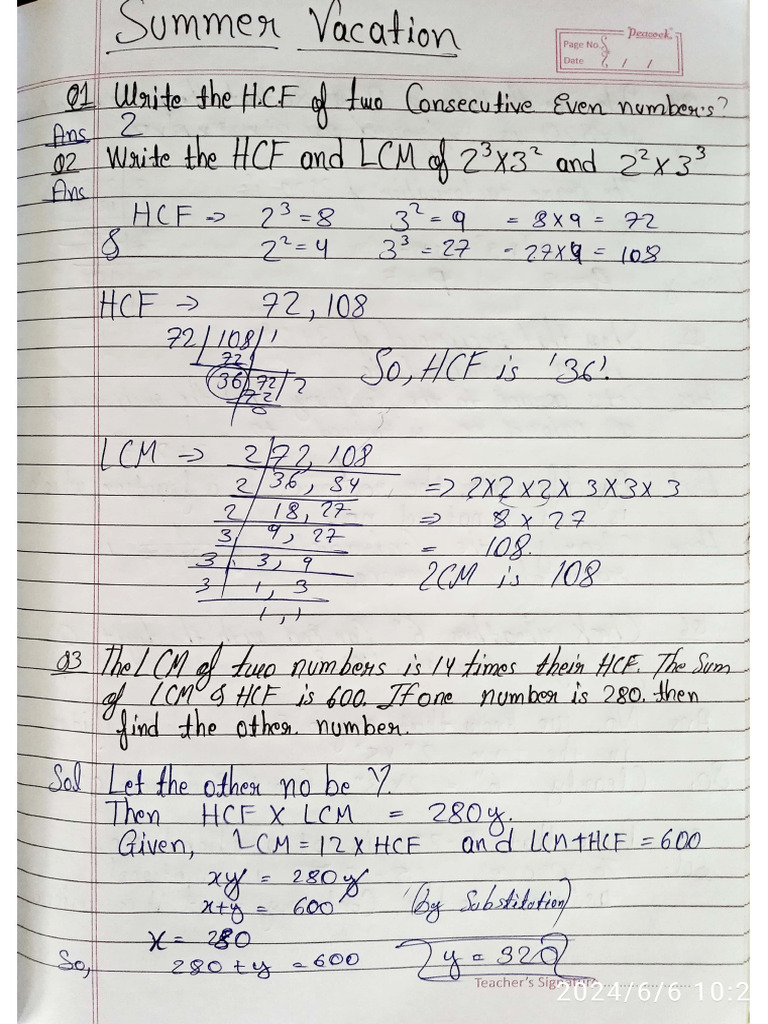 Summer Vacation
Peacock
Page No.
Date / /
Q1 Write the H.C.F of two Consecutive Even number's?
Ans 2
Q2 Write the HCF and LCM of 2³×3² and 2²×3³
Ans
HCF ⇒ 2³=8 3²=9 = 8×9 = 72
8 2²=4 3³=27 = 27×4 = 108
HCF → 72, 108
72 | 108 | 1
72
36 | 72 | 2
72
0
So, HCF is '36'.
LCM → 2 | 72, 108
2 | 36, 54 ⇒ 2×2×2×3×3×3
2 | 18, 27 ⇒ 8×27
3 | 9, 27 = 108.
3 | 3, 9 LCM is 108
3 | 1, 3
1, 1
Q3 The LCM of two numbers is 14 times their HCF. The Sum
of LCM & HCF is 600. If one number is 280. then
find the other number.
Sol Let the other no be Y.
Then HCF × LCM = 280y.
Given, LCM = 12 × HCF and LCM+HCF = 600
xy = 280y
x+y = 600 (by Substitution)
x = 280
So, 280+y = 600 y = 320
Teacher's Signature
2024/6/6 10:2